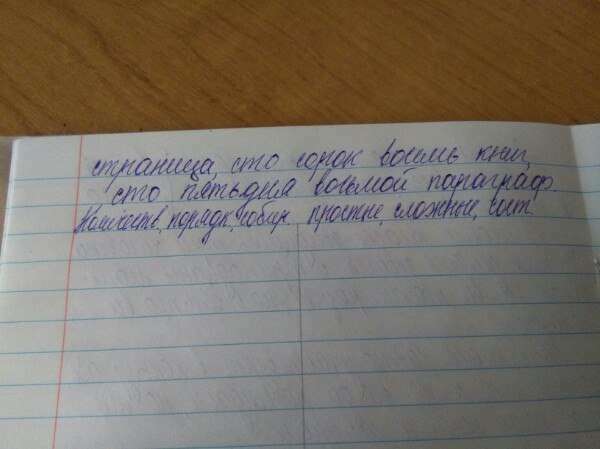 страница, сто сорок восемь книг,
сто пятьдня восьмой параграф
Количеств, порядк, собир. простые, сложные, сост.